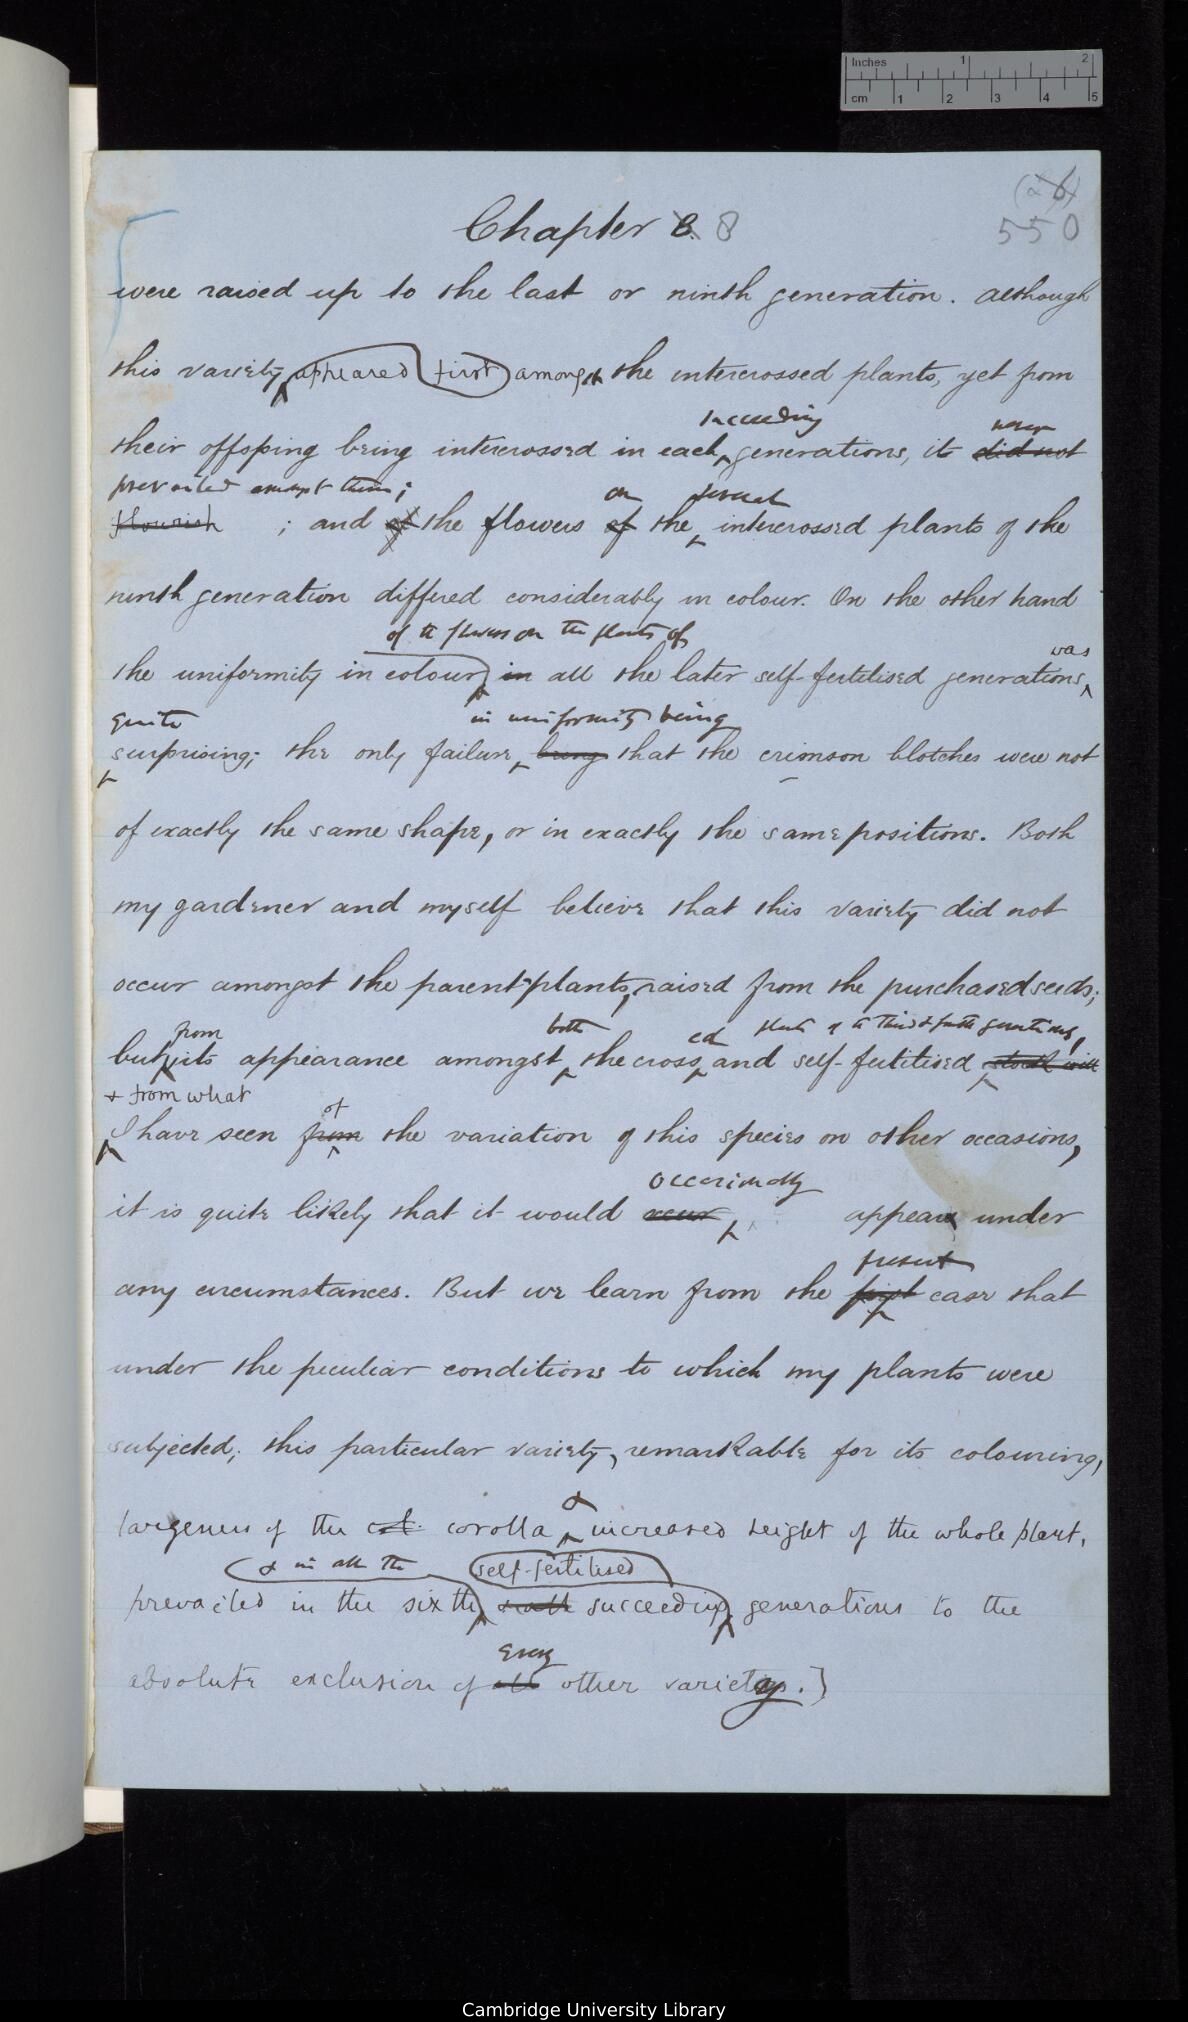 Inches 1 2
cm 1 2 3 4 5
(26)
Chapter 8. 8
550
were raised up to the last or ninth generation. Although
this variety appeared first amongst the intercrossed plants, yet from
succeeding never
their offspring being intercrossed in each generations, it did not
prevailed amongst them;
on several
flourish ; and of the flowers of the intercrossed plants of the
ninth generation differed considerably in colour. On the other hand
of the flowers on the plants of
was
the uniformity in colour, in all the later self-fertilised generations,
quite in uniformity being
surprising; the only failure being that the crimson blotches were not
of exactly the same shape, or in exactly the same positions. Both
my gardener and myself believe that this variety did not
occur amongst the parent-plants, raised from the purchased seeds;
from both ed plants of the third & fourth generations,
but its appearance amongst the cross and self-fertilised stock will
& from what
of
I have seen from the variation of this species on other occasions,
occasionally
it is quite likely that it would occur appear under
present
any circumstances. But we learn from the first case that
under the peculiar conditions to which my plants were
subjected, this particular variety, remarkable for its colouring,
&
largeness of the col. corolla increased height of the whole plant,
& in all the self-fertilised
prevailed in the sixth succeeding generations to the
every
absolute exclusion of all other variety.]
Cambridge University Library